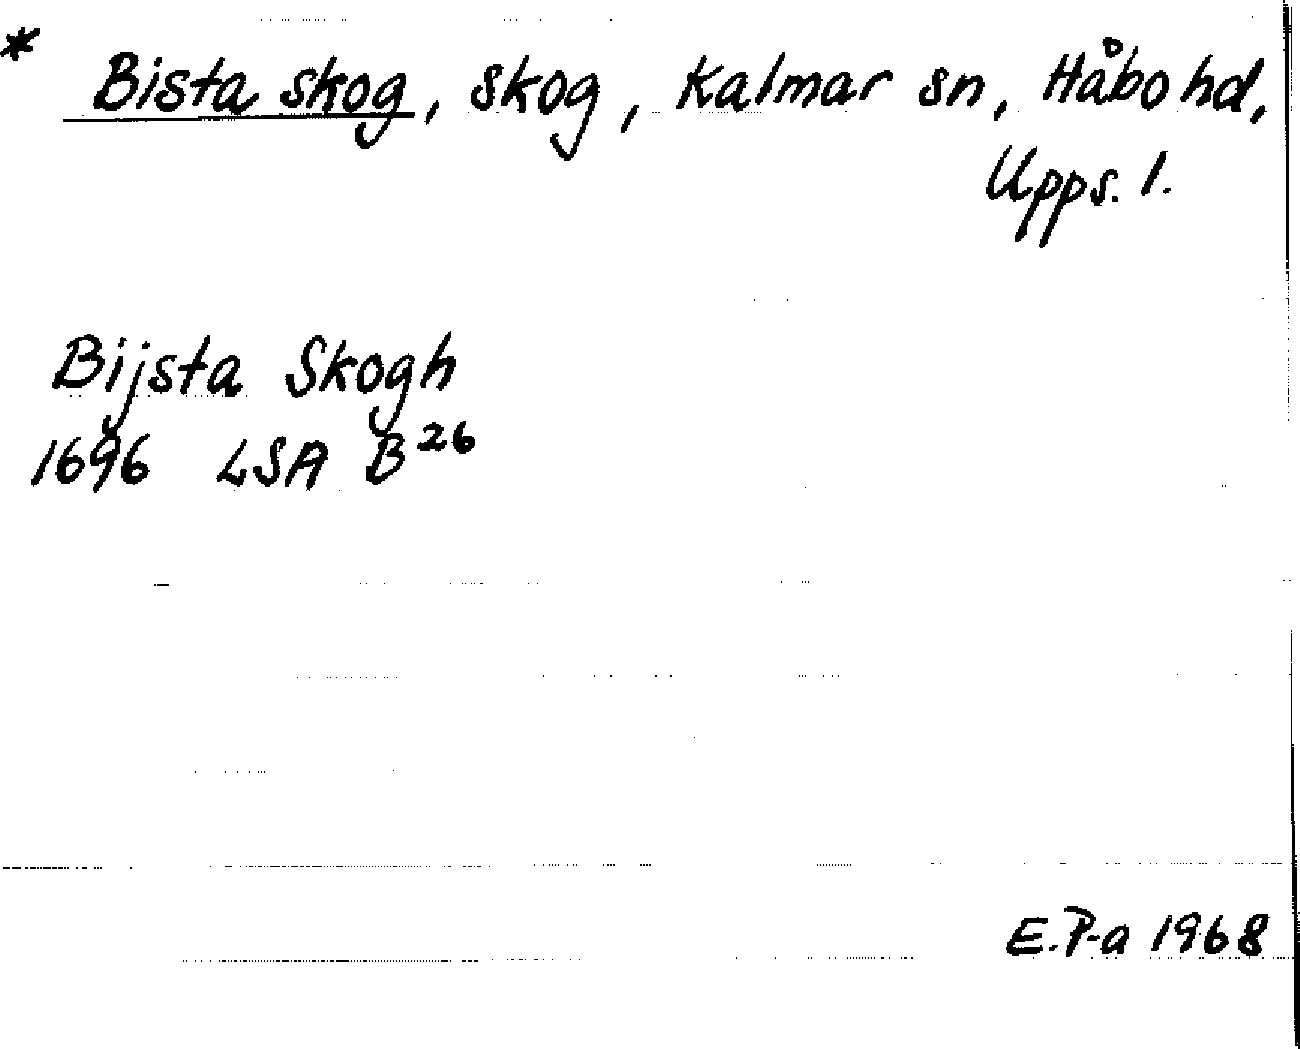 * Bista skog, skog, Kalmar sn, Håbo hd,
Upps. l.
Bijsta Skogh
1696 LSA B²⁶
E. P-a 1968